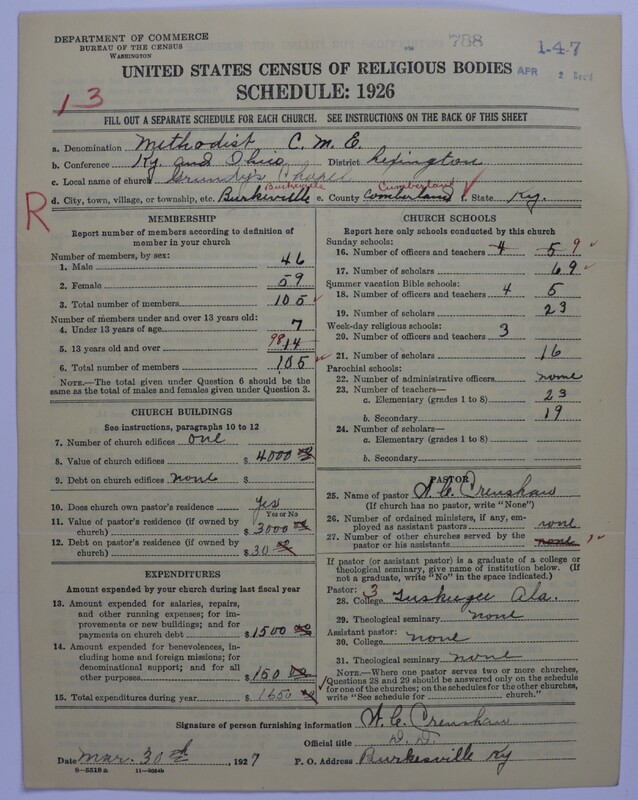 DEPARTMENT OF COMMERCE
BUREAU OF THE CENSUS
WASHINGTON
788
1-4-7
UNITED STATES CENSUS OF RELIGIOUS BODIES
APR 2
SCHEDULE: 1926
13
FILL OUT A SEPARATE SCHEDULE FOR EACH CHURCH. SEE INSTRUCTIONS ON THE BACK OF THIS SHEET
a. Denomination Methodist C. M. E.
b. Conference Ky and Ohio District Lexington
c. Local name of church Grundy's Chapel
Burkeville Cumberland
R d. City, town, village, or township, etc. Burkisville e. County Comberland f. State Ky.
MEMBERSHIP
Report number of members according to definition of member in your church
Number of members, by sex:
1. Male 46
2. Female 59
3. Total number of members 105
Number of members under and over 13 years old:
4. Under 13 years of age 7
5. 13 years old and over 98 14
6. Total number of members 105
NOTE.—The total given under Question 6 should be the same as the total of males and females given under Question 3.
CHURCH BUILDINGS
See instructions, paragraphs 10 to 12
7. Number of church edifices one
8. Value of church edifices $ 4000 00
9. Debt on church edifices none $
10. Does church own pastor's residence yes
Yes or No
11. Value of pastor's residence (if owned by church) $ 3000 00
12. Debt on pastor's residence (if owned by church) $ 30 00
EXPENDITURES
Amount expended by your church during last fiscal year
13. Amount expended for salaries, repairs, and other running expenses; for improvements or new buildings; and for payments on church debt $ 1500 00
14. Amount expended for benevolences, including home and foreign missions; for denominational support; and for all other purposes $ 150 00
15. Total expenditures during year $ 1650 00
CHURCH SCHOOLS
Report here only schools conducted by this church
Sunday schools:
16. Number of officers and teachers 4 5 9
17. Number of scholars 69
Summer vacation Bible schools:
18. Number of officers and teachers 4 5
19. Number of scholars 23
Week-day religious schools:
20. Number of officers and teachers 3
21. Number of scholars 16
Parochial schools:
22. Number of administrative officers none
23. Number of teachers—
a. Elementary (grades 1 to 8) 23
b. Secondary 19
24. Number of scholars—
a. Elementary (grades 1 to 8)
b. Secondary
PASTOR
25. Name of pastor A. C. Crenshaw
(If church has no pastor, write "None")
26. Number of ordained ministers, if any, employed as assistant pastors none
27. Number of other churches served by the pastor or his assistants none 1
If pastor (or assistant pastor) is a graduate of a college or theological seminary, give name of institution below. (If not a graduate, write "No" in the space indicated.)
Pastor: 3
28. College Tuskegee Ala.
29. Theological seminary none
Assistant pastor:
30. College none
31. Theological seminary none
NOTE.—Where one pastor serves two or more churches, Questions 28 and 29 should be answered only on the schedule for one of the churches; on the schedules for the other churches, write "See schedule for ______ church."
Signature of person furnishing information A. C. Crenshaw
Official title D. D.
Date Mar. 30th, 1927 P. O. Address Burkesville Ky
8—5518a 11—9054b